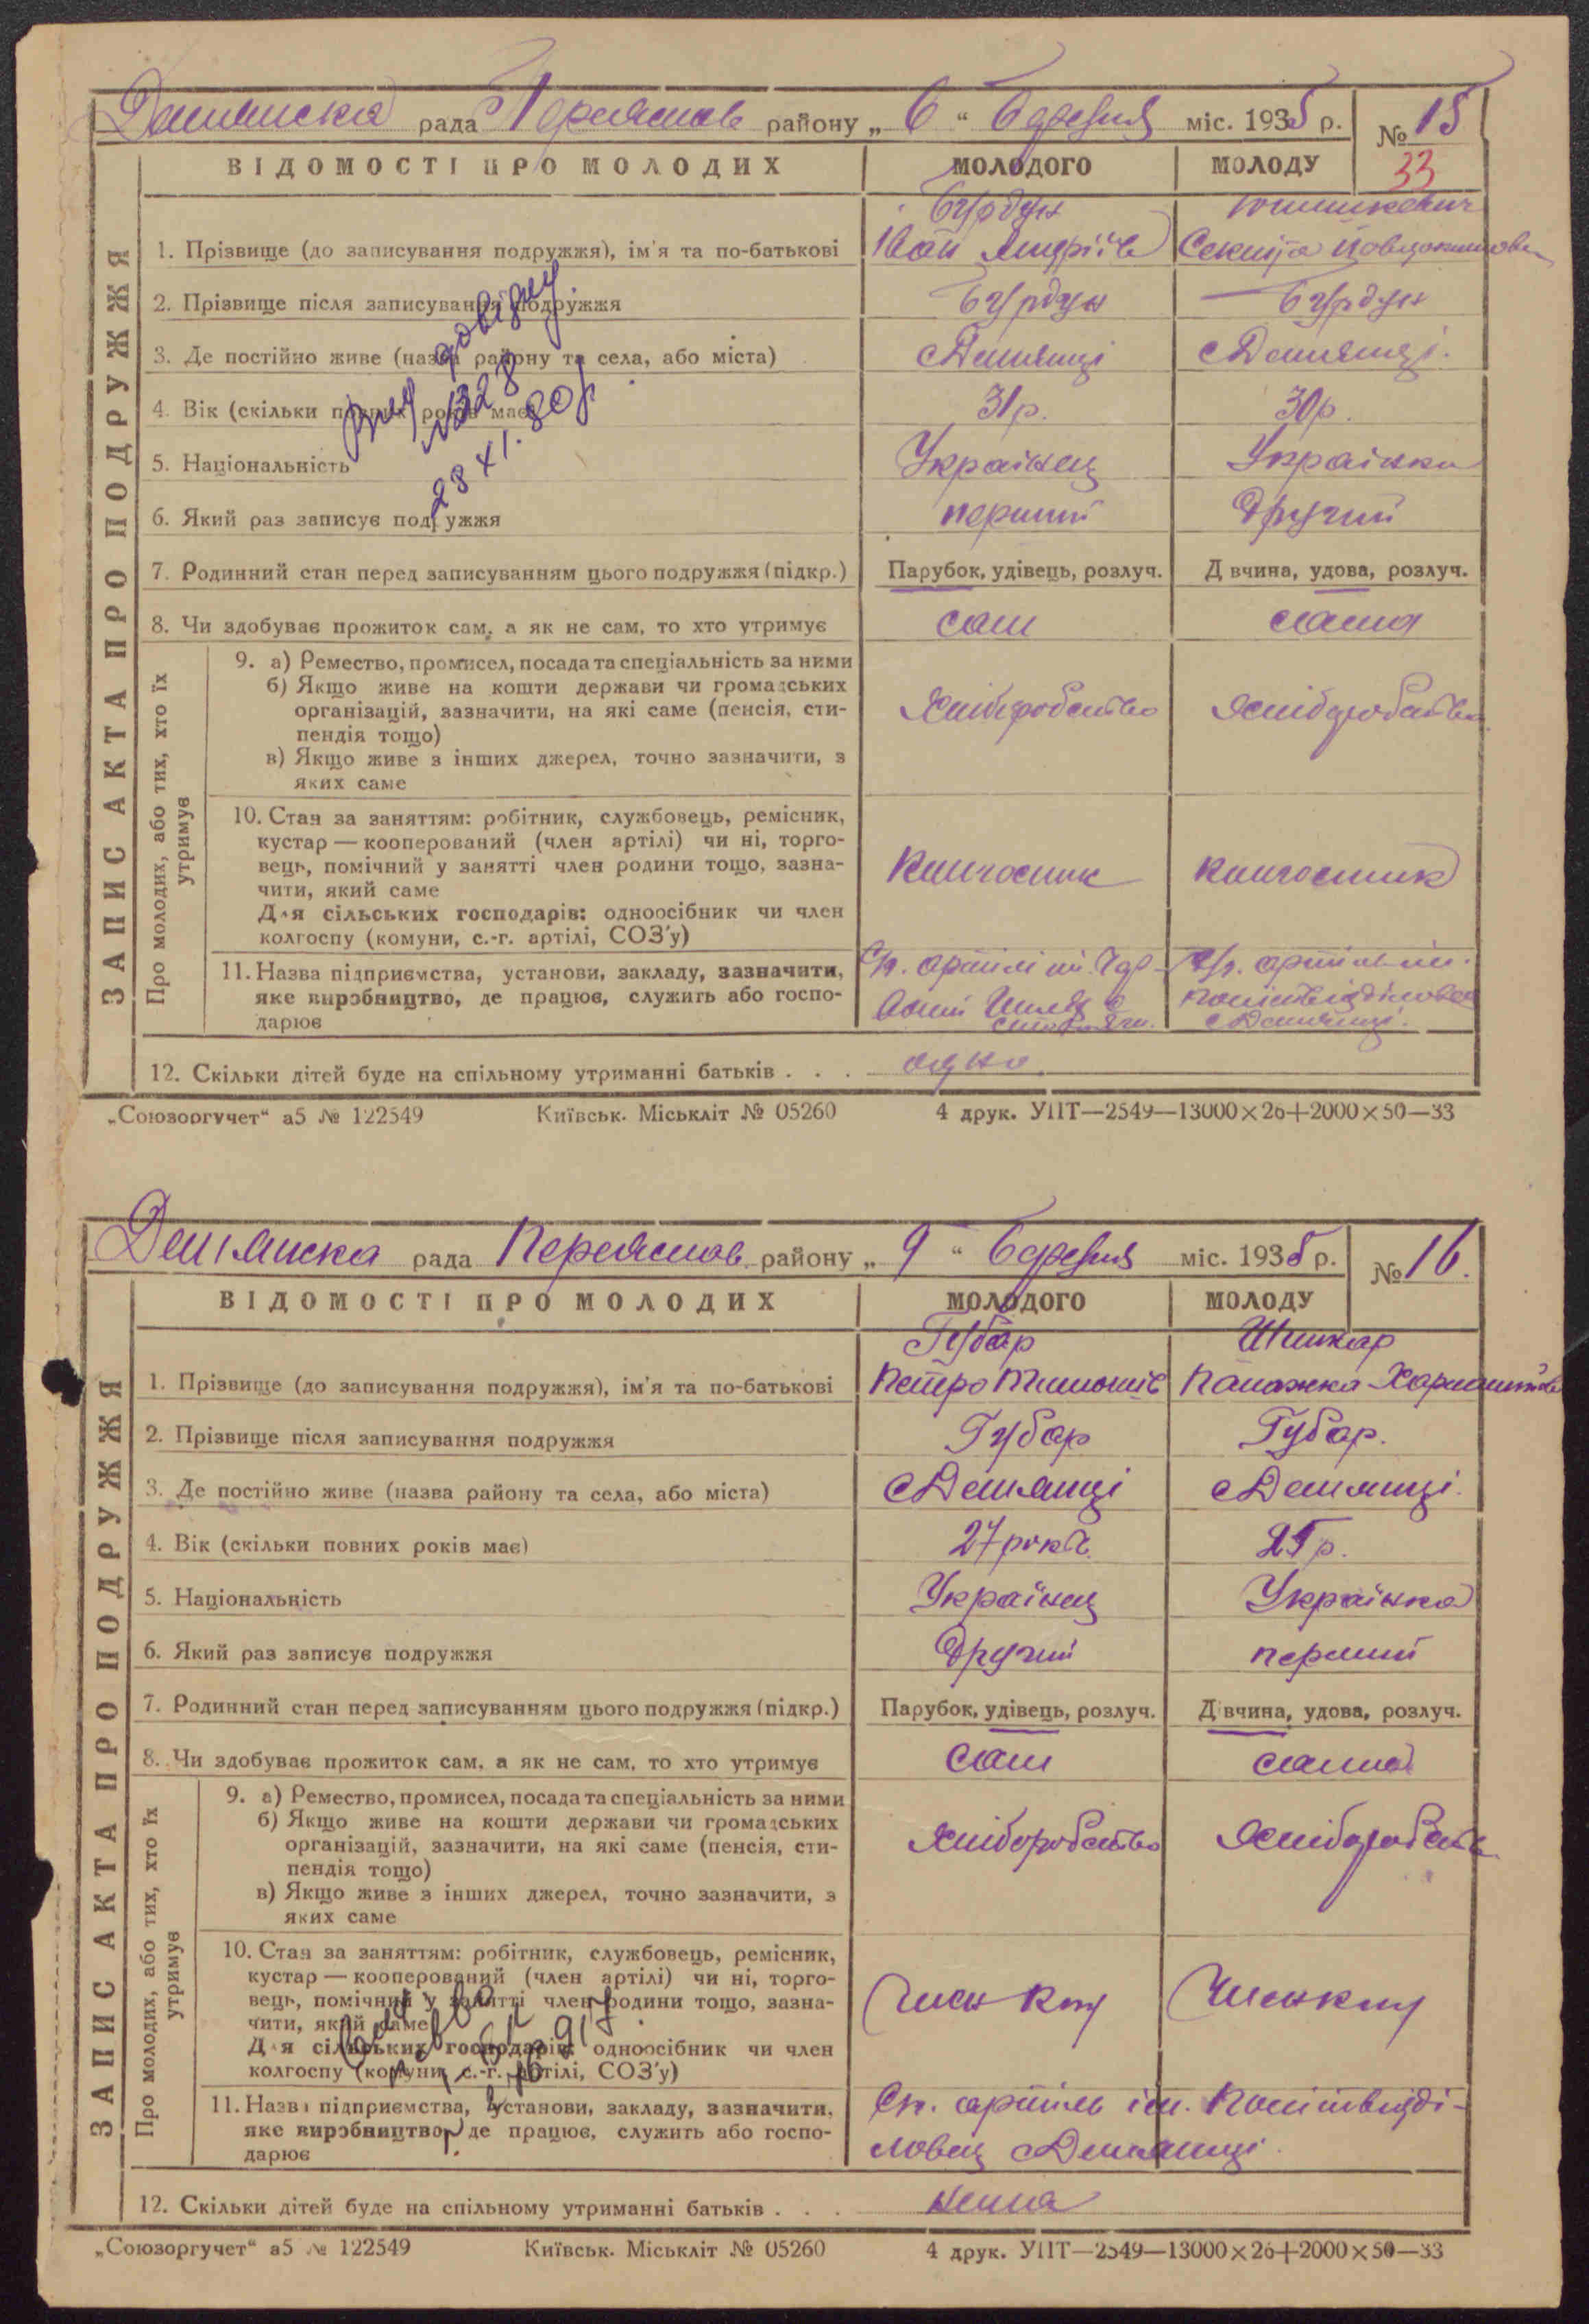 Демʼянска рада Переяслав району „ 6 “ березня міс. 1935 р. № 15
33
ВІДОМОСТІ ПРО МОЛОДИХ МОЛОДОГО МОЛОДУ
ЗАПИС АКТА ПРО ПОДРУЖЖЯ
Бурдун Юшикевич
1. Прізвище (до записування подружжя), ім'я та по-батькові Іван Андріїв
2. Прізвище після записування подружжя Бурдун Бурдун
3. Де постійно живе (назва району та села, або міста) с Демʼянці с Демʼянці.
4. Вік (скільки повних років має) 31 р. 30 р.
5. Національність Українец Українка
6. Який раз записує подружжя перший другий
7. Родинний стан перед записуванням цього подружжя (підкр.) Парубок, удівець, розлуч. Дівчина, удова, розлуч.
8. Чи здобуває прожиток сам, а як не сам, то хто утримує сам сама
Про молодих, або тих, хто їх утримує
9. а) Ремество, промисел, посада та спеціальність за ними
б) Якщо живе на кошти держави чи громадських
організацій, зазначити, на які саме (пенсія, сти-
пендія тощо)
в) Якщо живе з інших джерел, точно зазначити, з
яких саме
Хліборобство Хліборобство
10. Стан за заняттям: робітник, службовець, ремісник,
кустар — кооперований (член артілі) чи ні, торго-
вець, помічний у занятті член родини тощо, зазна-
чити, який саме
Для сільських господарів: одноосібник чи член
колгоспу (комуни, с.-г. артілі, СОЗ'у)
Колгосник колгосник
11. Назва підприємства, установи, закладу, зазначити,
яке виробництво, де працює, служить або госпо-
дарює
С/г. артілі ім. С/г. артіль ім.
Політвідділовец
с Демʼянці.
12. Скільки дітей буде на спільному утриманні батьків . . . одно.
довідку
№ 328
28 XI. 80 р.
„Союзоргучет“ а5 № 122549 Київськ. Міськліт № 05260 4 друк. УПТ—2549—13000×26+2000×50—33
Демʼянска рада Переяслав. району „ 9 “ березня міс. 1935 р. № 16.
ВІДОМОСТІ ПРО МОЛОДИХ МОЛОДОГО МОЛОДУ
ЗАПИС АКТА ПРО ПОДРУЖЖЯ
Губар Шинкар
1. Прізвище (до записування подружжя), ім'я та по-батькові Петро Тимошів Палажка Харитонова
2. Прізвище після записування подружжя Губар Губар.
3. Де постійно живе (назва району та села, або міста) с Демʼянці с Демʼянці.
4. Вік (скільки повних років має) 27 років. 25 р.
5. Національність Українец Українка
6. Який раз записує подружжя другий перший
7. Родинний стан перед записуванням цього подружжя (підкр.) Парубок, удівець, розлуч. Дівчина, удова, розлуч.
8. Чи здобуває прожиток сам, а як не сам, то хто утримує сам сама
Про молодих, або тих, хто їх утримує
9. а) Ремество, промисел, посада та спеціальність за ними
б) Якщо живе на кошти держави чи громадських
організацій, зазначити, на які саме (пенсія, сти-
пендія тощо)
в) Якщо живе з інших джерел, точно зазначити, з
яких саме
Хліборобство Хліборобств
10. Стан за заняттям: робітник, службовець, ремісник,
кустар — кооперований (член артілі) чи ні, торго-
вець, помічний у занятті член родини тощо, зазна-
чити, який саме
Для сільських господарів: одноосібник чи член
колгоспу (комуни, с.-г. артілі, СОЗ'у)
Член Член
11. Назва підприємства, установи, закладу, зазначити,
яке виробництво, де працює, служить або госпо-
дарює
Сг. артіль ім. Політвідді-
ловец с Демʼянці.
12. Скільки дітей буде на спільному утриманні батьків . . . нема
„Союзоргучет“ а5 № 122549 Київськ. Міськліт № 05260 4 друк. УПТ—2549—13000×26+2000×50—33